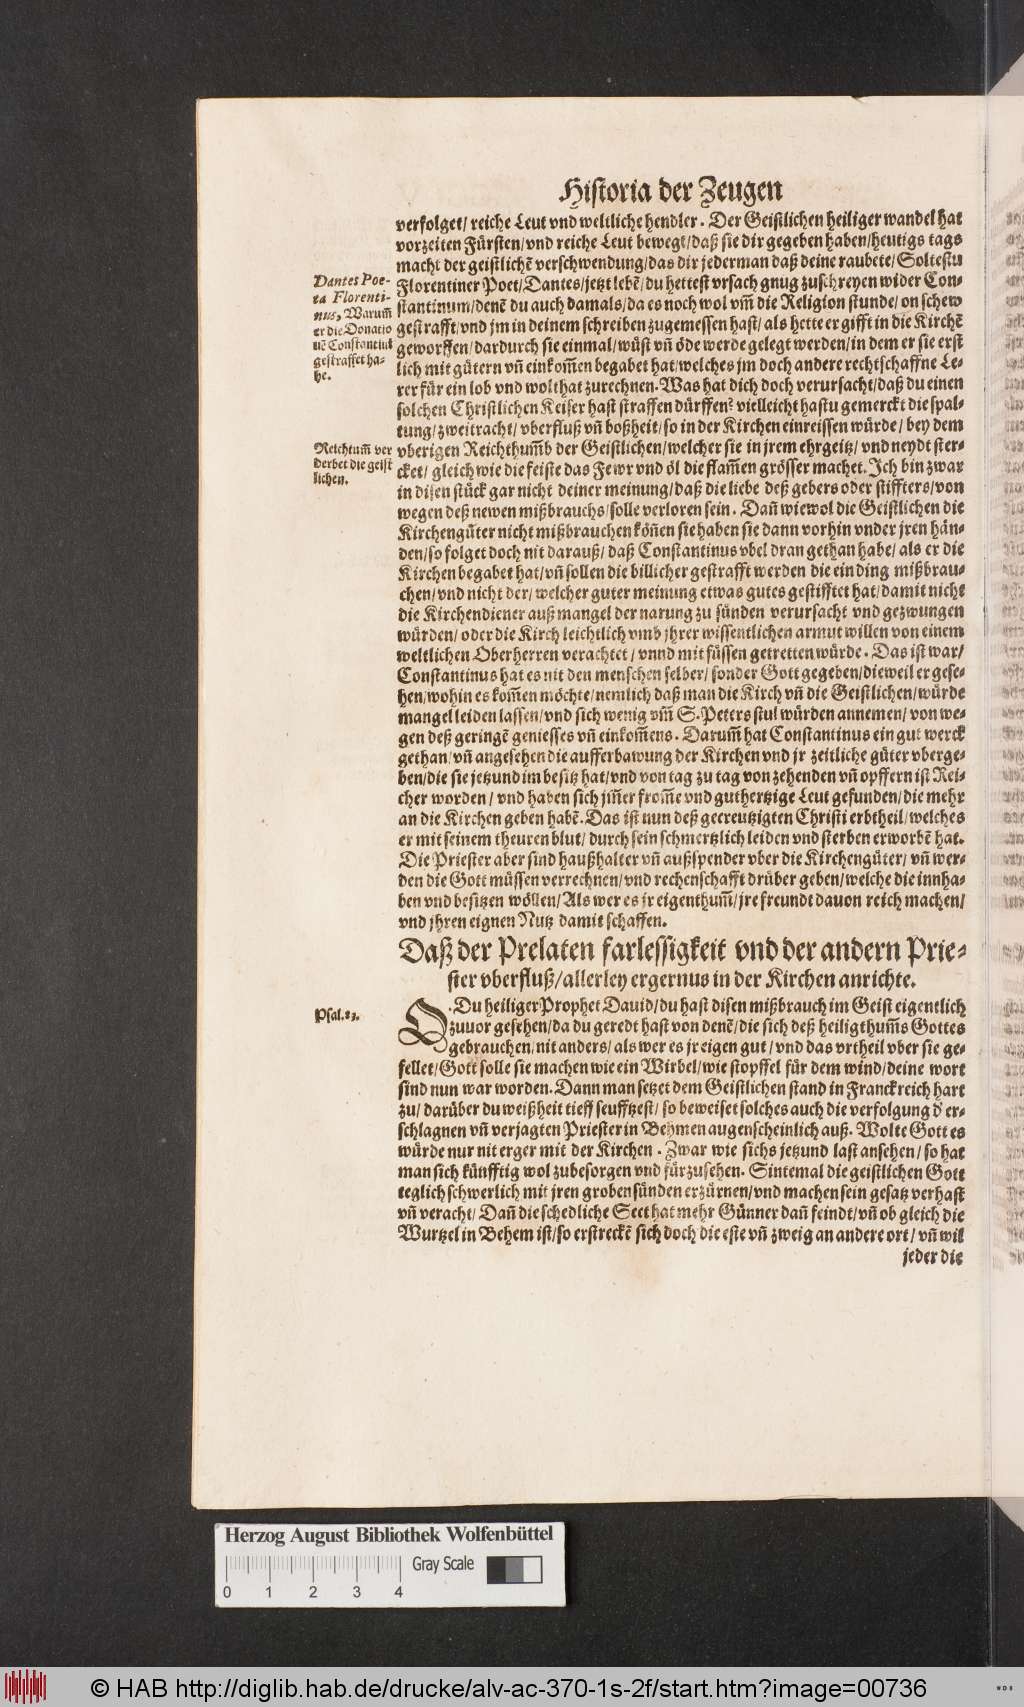 Historia der Zeugen
verfolget/ reiche Leut vnd weltliche hendler. Der Geistlichen heiliger wandel hat
vorzeiten Fürsten/vnd reiche Leut bewegt/daß sie dir gegeben haben/heutigs tags
macht der geistlichẽ verschwendung/das dir jederman daß deine raubete/Soltestu
Florentiner Poet/Dantes/jetzt lebẽ/du hettest vrsach gnug zuschreyen wider Con-
stantinum/denẽ du auch damals/da es noch wol vm̃ die Religion stunde/on schew
gestrafft/vnd jm in deinem schreiben zugemessen hast/als hette er gifft in die Kirchẽ
geworffen/dardurch sie einmal/wüst vñ öde werde gelegt werden/in dem er sie erst
lich mit gütern vñ einkom̃en begabet hat/welches jm doch andere rechtschaffne Le-
rer für ein lob vnd wolthat zurechnen. Was hat dich doch verursacht/daß du einen
solchen Christlichen Keiser hast straffen dürffen? vielleicht hastu gemerckt die spal-
tung/zweitracht/vberfluß vñ boßheit/so in der Kirchen einreissen würde/bey dem
vberigen Reichthum̃b der Geistlichen/welcher sie in jrem ehrgeitz/vnd neydt ster-
cket/ gleich wie die feiste das Fewr vnd öl die flam̃en grösser machet. Ich bin zwar
in disen stück gar nicht deiner meinung/daß die liebe deß gebers oder stiffters/von
wegen deß newen mißbrauchs/solle verloren sein. Dañ wiewol die Geistlichen die
Kirchengüter nicht mißbrauchen köñen sie haben sie dann vorhin vnder jren hän-
den/so folget doch nit darauß/ daß Constantinus vbel dran gethan habe/als er die
Kirchen begabet hat/vñ sollen die billicher gestrafft werden die ein ding mißbrau-
chen/vnd nicht der/welcher guter meinung etwas gutes gestifftet hat/damit nicht
die Kirchendiener auß mangel der narung zu sünden verursacht vnd gezwungen
würden/ oder die Kirch leichtlich vmb jhrer wissentlichen armut willen von einem
weltlichen Oberherren verachtet/ vnnd mit füssen getretten würde. Das ist war/
Constantinus hat es nit den menschen selber/sonder Gott gegeben/dieweil er gese-
hen/wohin es kom̃en möchte/nemlich daß man die Kirch vñ die Geistlichen/würde
mangel leiden lassen/vnd sich wenig vm̃ S. Peters stul würden annemen/ von we-
gen deß geringẽ geniesses vñ einkom̃ens. Darum̃ hat Constantinus ein gut werck
gethan/vñ angesehen die aufferbawung der Kirchen vnd jr zeitliche güter vberge-
ben/die sie jetzund im besitz hat/vnd von tag zu tag von zehenden vñ opffern ist Rei-
cher worden/ vnd haben sich jm̃er from̃e vnd guthertzige Leut gefunden/die mehr
an die Kirchen geben habẽ. Das ist nun deß gecreutzigten Christi erbtheil/welches
er mit seinem theuren blut/ durch sein schmertzlich leiden vnd sterben erworbẽ hat.
Die Priester aber sind haußhalter vñ außspender vber die Kirchengüter/ vñ wer-
den die Gott müssen verrechnen/vnd rechenschafft drüber geben/welche die innha-
ben vnd besitzen wöllen/Als wer es jr eigenthum̃/jre freundt dauon reich machen/
vnd jhren eignen Nutz damit schaffen.
Dantes Poe-
ta Florenti-
nus, Warum̃
er die Donatio
nẽ Constantini
gestraffet ha-
be.
Reichtum̃ ver
derbet die geist
lichen.
Daß der Prelaten farlessigkeit vnd der andern Prie-
ster vberfluß/allerley ergernus in der Kirchen anrichte.
Psal. 83.
O Du heiliger Prophet Dauid/du hast disen mißbrauch im Geist eigentlich
zuuor gesehen/da du geredt hast von denẽ/die sich deß heiligthum̃s Gottes
gebrauchen/nit anders/als wer es jr eigen gut/vnd das vrtheil vber sie ge-
fellet/Gott solle sie machen wie ein Wirbel/wie stopffel für dem wind/deine wort
sind nun war worden. Dann man setzet dem Geistlichen stand in Franckreich hart
zu/ darüber du weißheit tieff seufftzest/ so beweiset solches auch die verfolgung d' er-
schlagnen vñ verjagten Priester in Behmen augenscheinlich auß. Wolte Gott es
würde nur nit erger mit der Kirchen. Zwar wie sichs jetzund last ansehen/so hat
man sich künfftig wol zubesorgen vnd fürzusehen. Sintemal die geistlichen Gott
teglich schwerlich mit jren groben sünden erzürnen/vnd machen sein gesatz verhast
vñ veracht/ Dañ die schedliche Sect hat mehr Günner dañ feindt/vñ ob gleich die
Wurtzel in Behem ist/so erstreckẽ sich doch die este vñ zweig an andere ort/ vñ wil
jeder die
Herzog August Bibliothek Wolfenbüttel
0 1 2 3 4 Gray Scale
© HAB http://diglib.hab.de/drucke/alv-ac-370-1s-2f/start.htm?image=00736